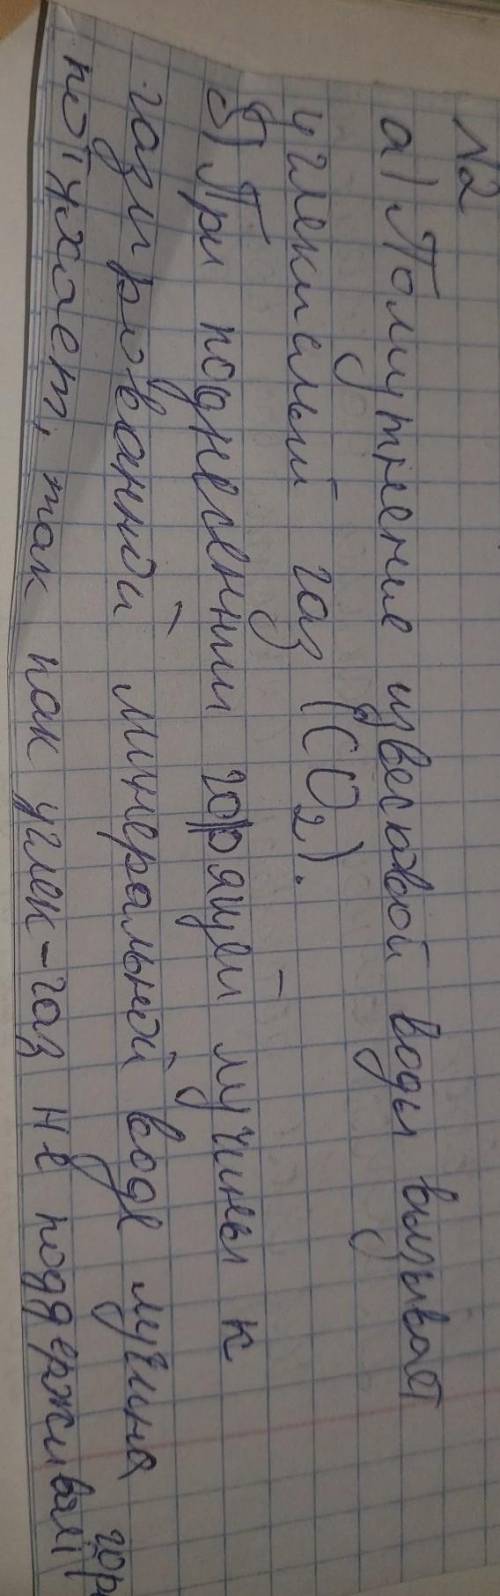 №2
а) Помутнение известковой воды вызывает
углекислый газ (CO₂).
б) При поднесении горящей лучины к
газированной минеральной воде лучина
потухает, так как углек-газ не поддерживает гор